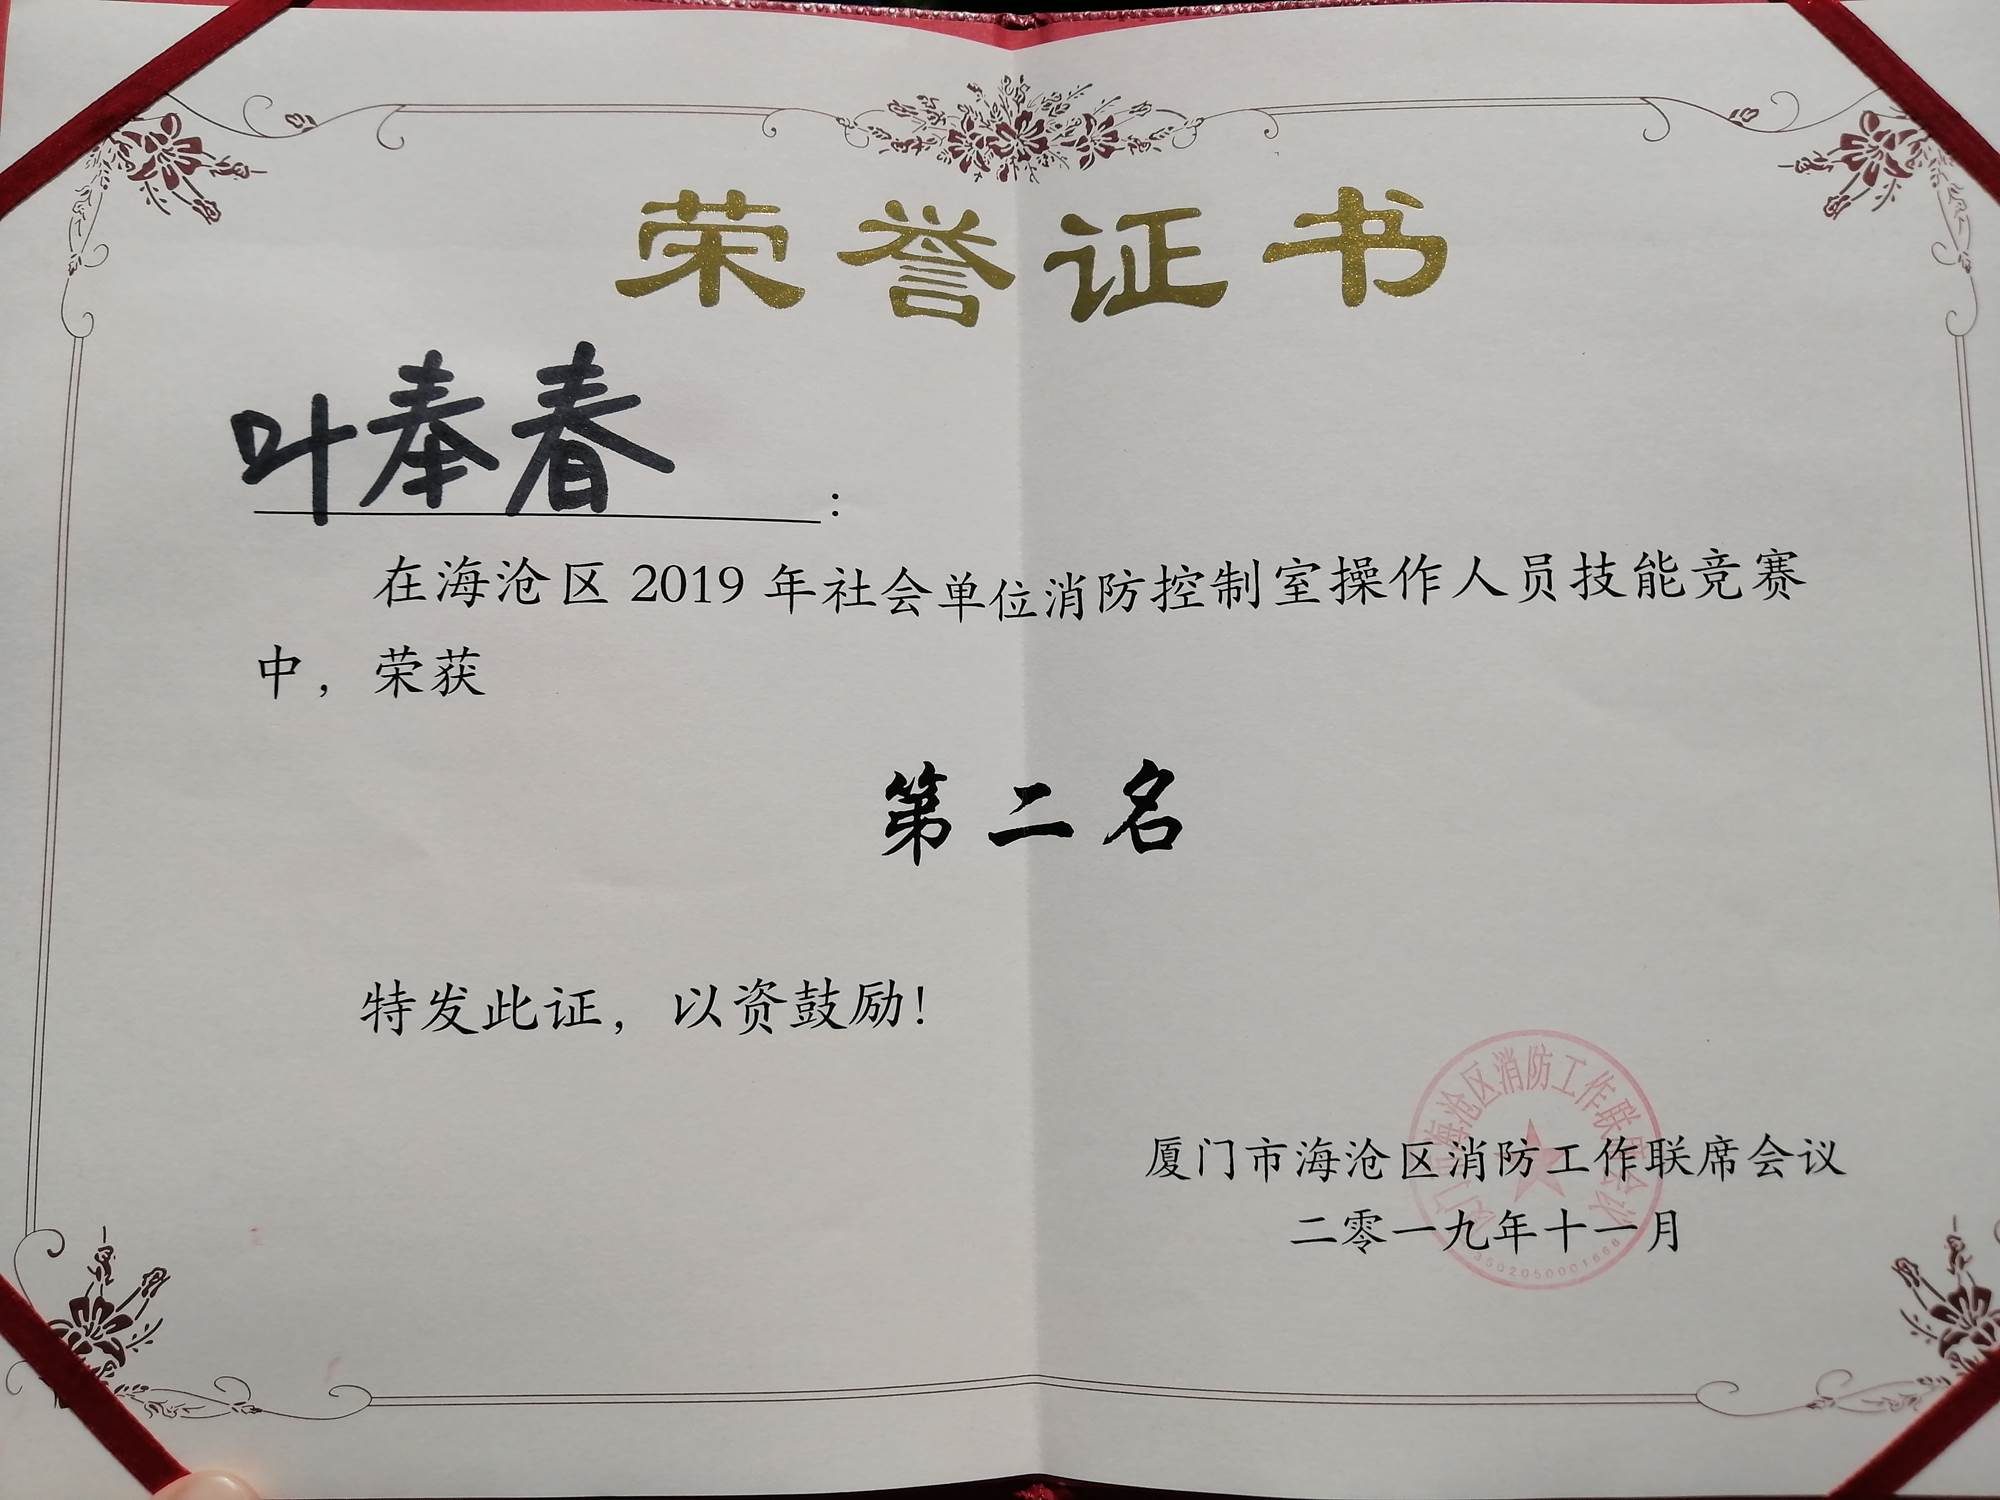 荣誉证书
叶奉春：
在海沧区2019年社会单位消防控制室操作人员技能竞赛
中，荣获
第二名
特发此证，以资鼓励！
厦门市海沧区消防工作联席会议
二零一九年十一月
厦门市海沧区消防工作联席会议